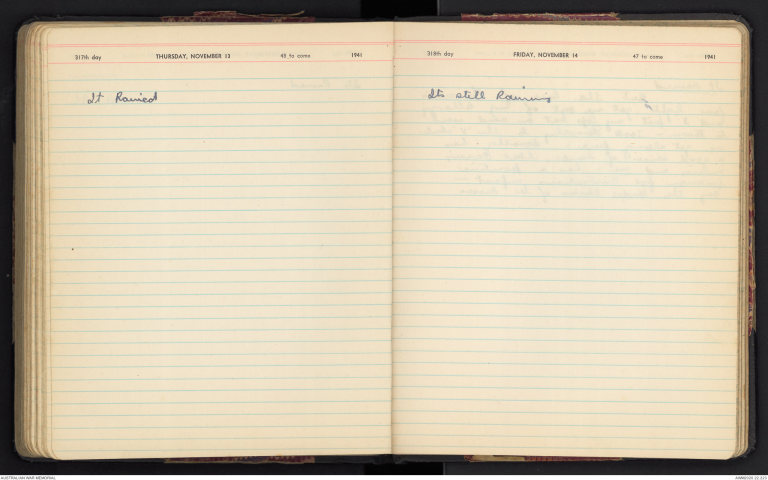 317th day THURSDAY, NOVEMBER 13 48 to come 1941
It Rained
318th day FRIDAY, NOVEMBER 14 47 to come 1941
Its still Raining
AUSTRALIAN WAR MEMORIAL
AWM2020.22.223